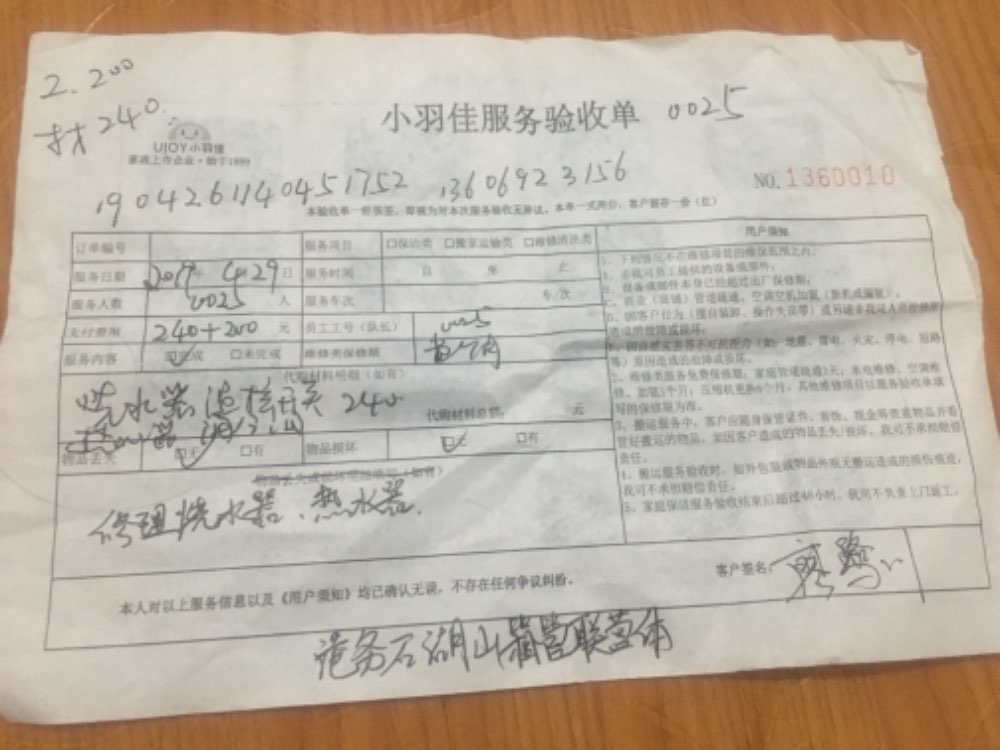 2.200
材240.
小羽佳服务验收单 0025
UJOY小羽佳
家政上市企业·始于1999
1904261140451752 13606923156
NO.1360010
本验收单一经核签,即视为对本次服务验收无异议,本单一式两份,客户留存一份(红)
订单编号 服务项目 □保洁类 □搬家运输类 □维修清洗类
服务日期 2019年 4.29日 服务时间 自 至 止
服务人数 0025 人 服务车次 车/次
支付费用 240+200 元 员工工号(队长) 0025
服务内容 ☑完成 □未完成 维修类保修期
代购材料明细(如有)
240. 代购材料总额: 元
物品丢失 ☑无 □有 物品损坏 ☑无 □有
物品丢失或损坏明细填写(如有)
修理烧水器、热水器.
本人对以上服务信息以及《用户须知》均已确认无误,不存在任何争议纠纷。
客户签名:
用户须知
1、下列情况不在维修项目的维保范围之内:
A、非我司员工提供的设备或部件;
B、设备或部件本身已经超过出厂保修期;
C、商业(店铺)管道疏通、空调空机加氟(新机或漏氟);
D、因客户行为(擅自装卸、操作失误等)或另请非我司人员维修所
造成的故障或损坏。
E、因自然灾害等不可抗拒力(如:地震、雷电、火灾、停电、短路
等)原因造成的故障或损坏。
2、维修类服务免费保修期:家庭管道疏通3天,水电维修、空调维
修、加氟1个月,压缩机更换6个月,其他维修项目以服务验收单填
写的保修期为准。
3、搬运服务中,客户应随身保管证件、首饰、现金等贵重物品并看
管好搬运的物品,如因客户造成的物品丢失/损坏,我司不承担赔偿
责任。
4、搬运服务验收时,如外包装或物品外观无搬运造成的损伤痕迹,
我司不承担赔偿责任。
5、家庭保洁服务验收结束后超过48小时,我司不负责上门返工。
石湖山 联营体